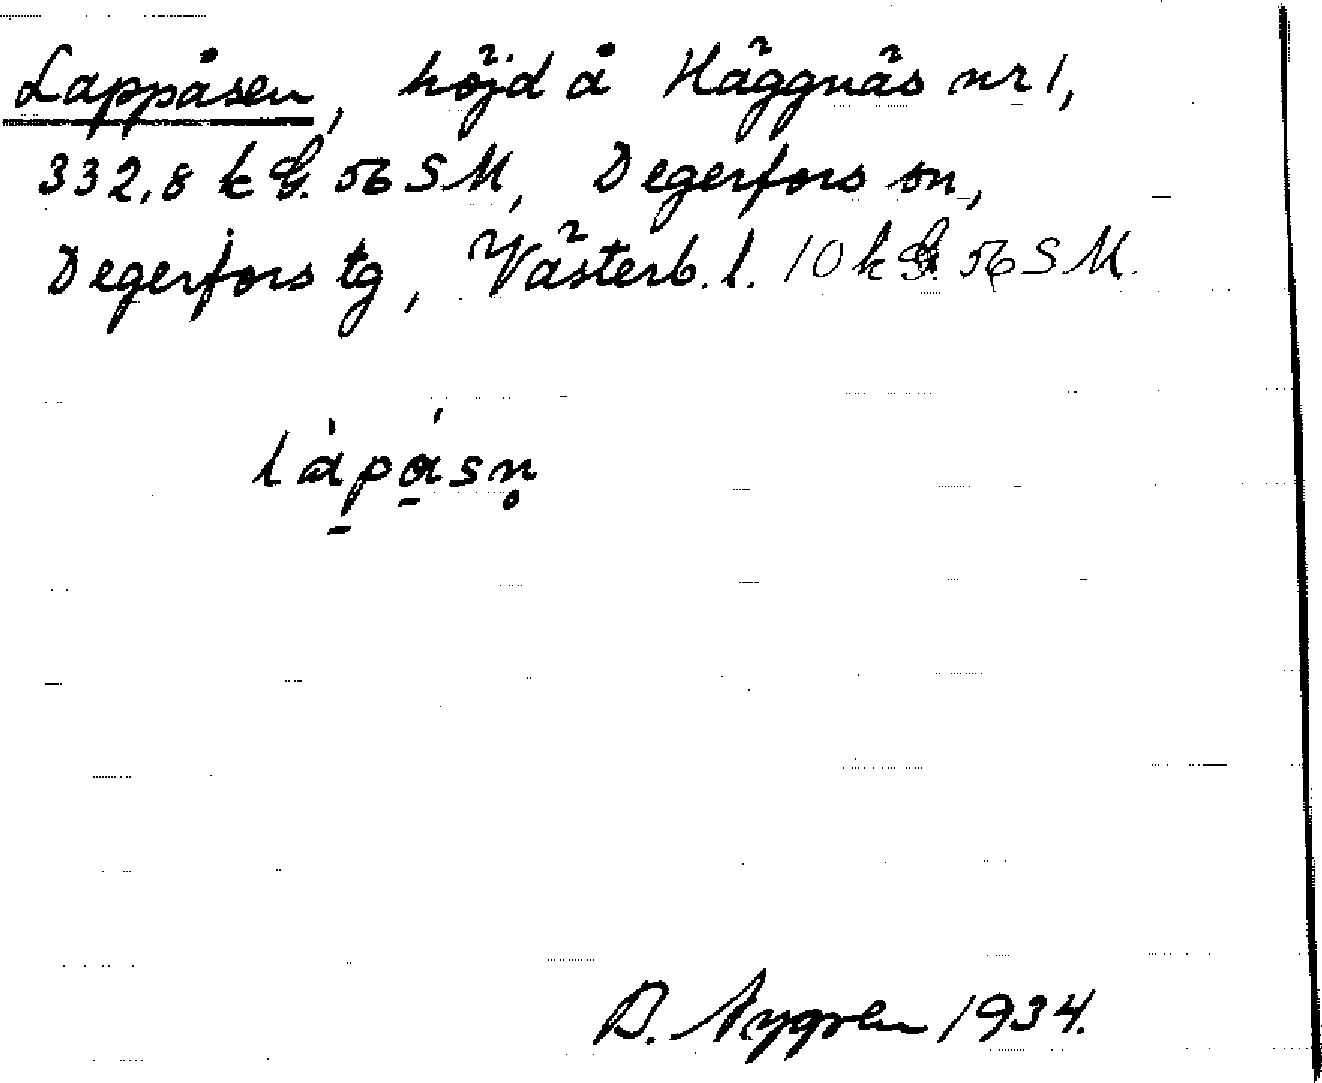 Lappåsen, höjd å Häggnäs nr 1,
332,8 k G. 56 SM, Degerfors sn,
Degerfors tg, Västerb. l. 10 k G. 56 SM.
làpásn̥
B. Nygren 1934.